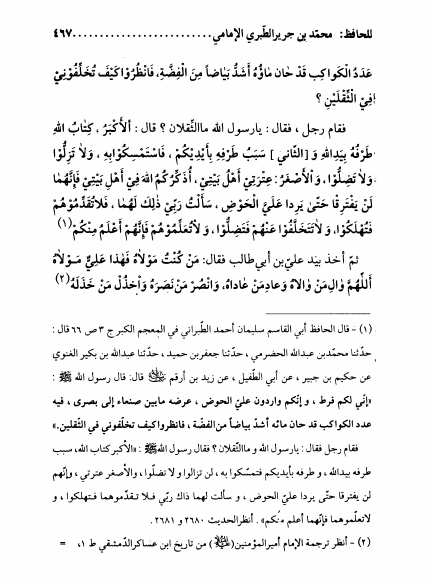 للحافظ: محمّد بن جرير الطّبري الإمامي ........................ ٤٦٧
عَدَدُ الكَواكِبِ قَدْ حَانَ ماؤُهُ أَشَدُّ بَيَاضاً مِنَ الفِضَّةِ، فَانْظُرُوا كَيْفَ تُخَلِّفُونِيْ
فِيْ الثَّقَلَيْنِ ؟
فقام رجل ، فقال : يارسول الله ماالثّقلان ؟ قال : أَلأَكْبَرُ ، كِتَابُ اللهِ
طَرْفُهُ بِيَدِاللهِ وَ [الثّاني] سَبَبُ طَرْفِهِ بِأَيْدِيْكُمْ ، فَاسْتَمْسِكُوابِهِ ، وَلاَ تَزِلُّوا
وَلاَ تَضِلُّوا، وَأْلأَصْغَرُ: عِتْرَتِي أَهْلُ بَيْتِيْ، أُذَكِّرُكُمُ اللهَ فِيْ أَهْلِ بَيْتِيْ فَإِنَّهُما
لَنْ يَفْتَرِقَا حَتّىٰ يَرِدا عَلَيَّ الْحَوْضِ ، سَأَلْتُ رَبِّيْ ذٰلِكَ لَهُما ، فَلاَتَقَدَّمُوْهُمْ
فَتُهْلَكُوا، وَلاٰتَتَخَلَّفُوا عَنْهُمْ فَتَضِلُّوا ، وَلاٰتُعَلِّمُوْهُمْ فَإِنَّهُمْ أَعْلَمُ مِنْكُمْ(١)
ثمّ أخذ بيَد عليّ بن أبي طالب فقال: مَنْ كُنْتُ مَوْلاَهُ فَهٰذا عَلِيٌّ مَوْلاَهُ
أَللّهُمَّ وَالِ مَنْ وَالاهُ وَعادِ مَنْ عاداهُ، وَانْصُرْ مَنْ نَصَرَهُ وَاخْذُلْ مَنْ خَذَلَهُ(٢)
(١) - قال الحافظ أبي القاسم سليمان أحمد الطّبراني في المعجم الكبر ج ٣ ص ٦٦ قال :
حدّثنا محمّدبن عبدالله الحضرمي ، حدّثنا جعفربن حميد ، حدّثنا عبدالله بن بكير الغنوي
عن حكيم بن جبير ، عن أبي الطّفيل ، عن زيد بن أرقم قال: قال رسول الله ﷺ :
«إنّي لكم فرط ، و إنّكم واردون عليّ الحوض ، عرضه مابين صنعاء إلى بصرى ، فيه
عدد الكواكب قد حان مائه أشدّ بياضاً من الفضّة ، فانظروا كيف تخلّفوني في الثّقلين.»
فقام رجل فقال : يارسول الله و ماالثّقلان ؟ فقال رسول الله ﷺ : «الأكبر كتاب الله، سبب
طرفه بيدالله ، و طرفه بأيديكم فتمسّكوا به ، لن تزالوا و لا تضلّوا، والأصغر عترتي ، وإنّهم
لن يفترقا حتّى يردا عليّ الحوض ، و سألت لهما ذاك ربّي فـلا تـقدّموهما فـتهلكوا ، و
لاتعلّموهما فإنّهما أعلم منكم». أنظر الحديث ٢٦٨٠ و ٢٦٨١ .
(٢) - أنظر ترجمة الإمام أميرالمؤمنين من تاريخ ابن عساكر الدّمشقي ط ١، =